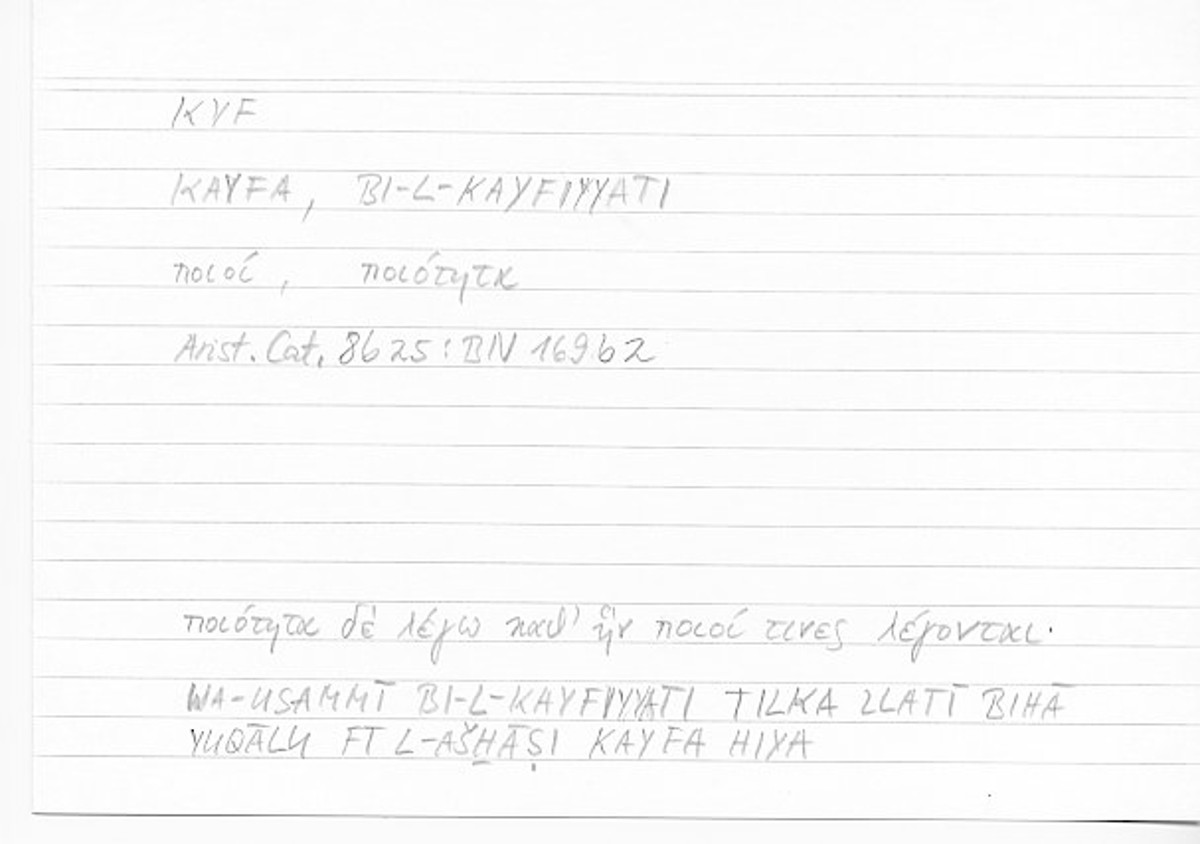 KYF
KAYFA, BI-L-KAYFIYYATI
ποιοί, ποιότητα
Arist. Cat. 8b25 : BN 169b2
ποιότητα δὲ λέγω καθ' ἣν ποιοί τινες λέγονται·
WA-USAMMĪ BI-L-KAYFIYYATI TILKA LLATĪ BIHĀ
YUQĀLU FĪ L-AŠḪĀṢI KAYFA HIYA